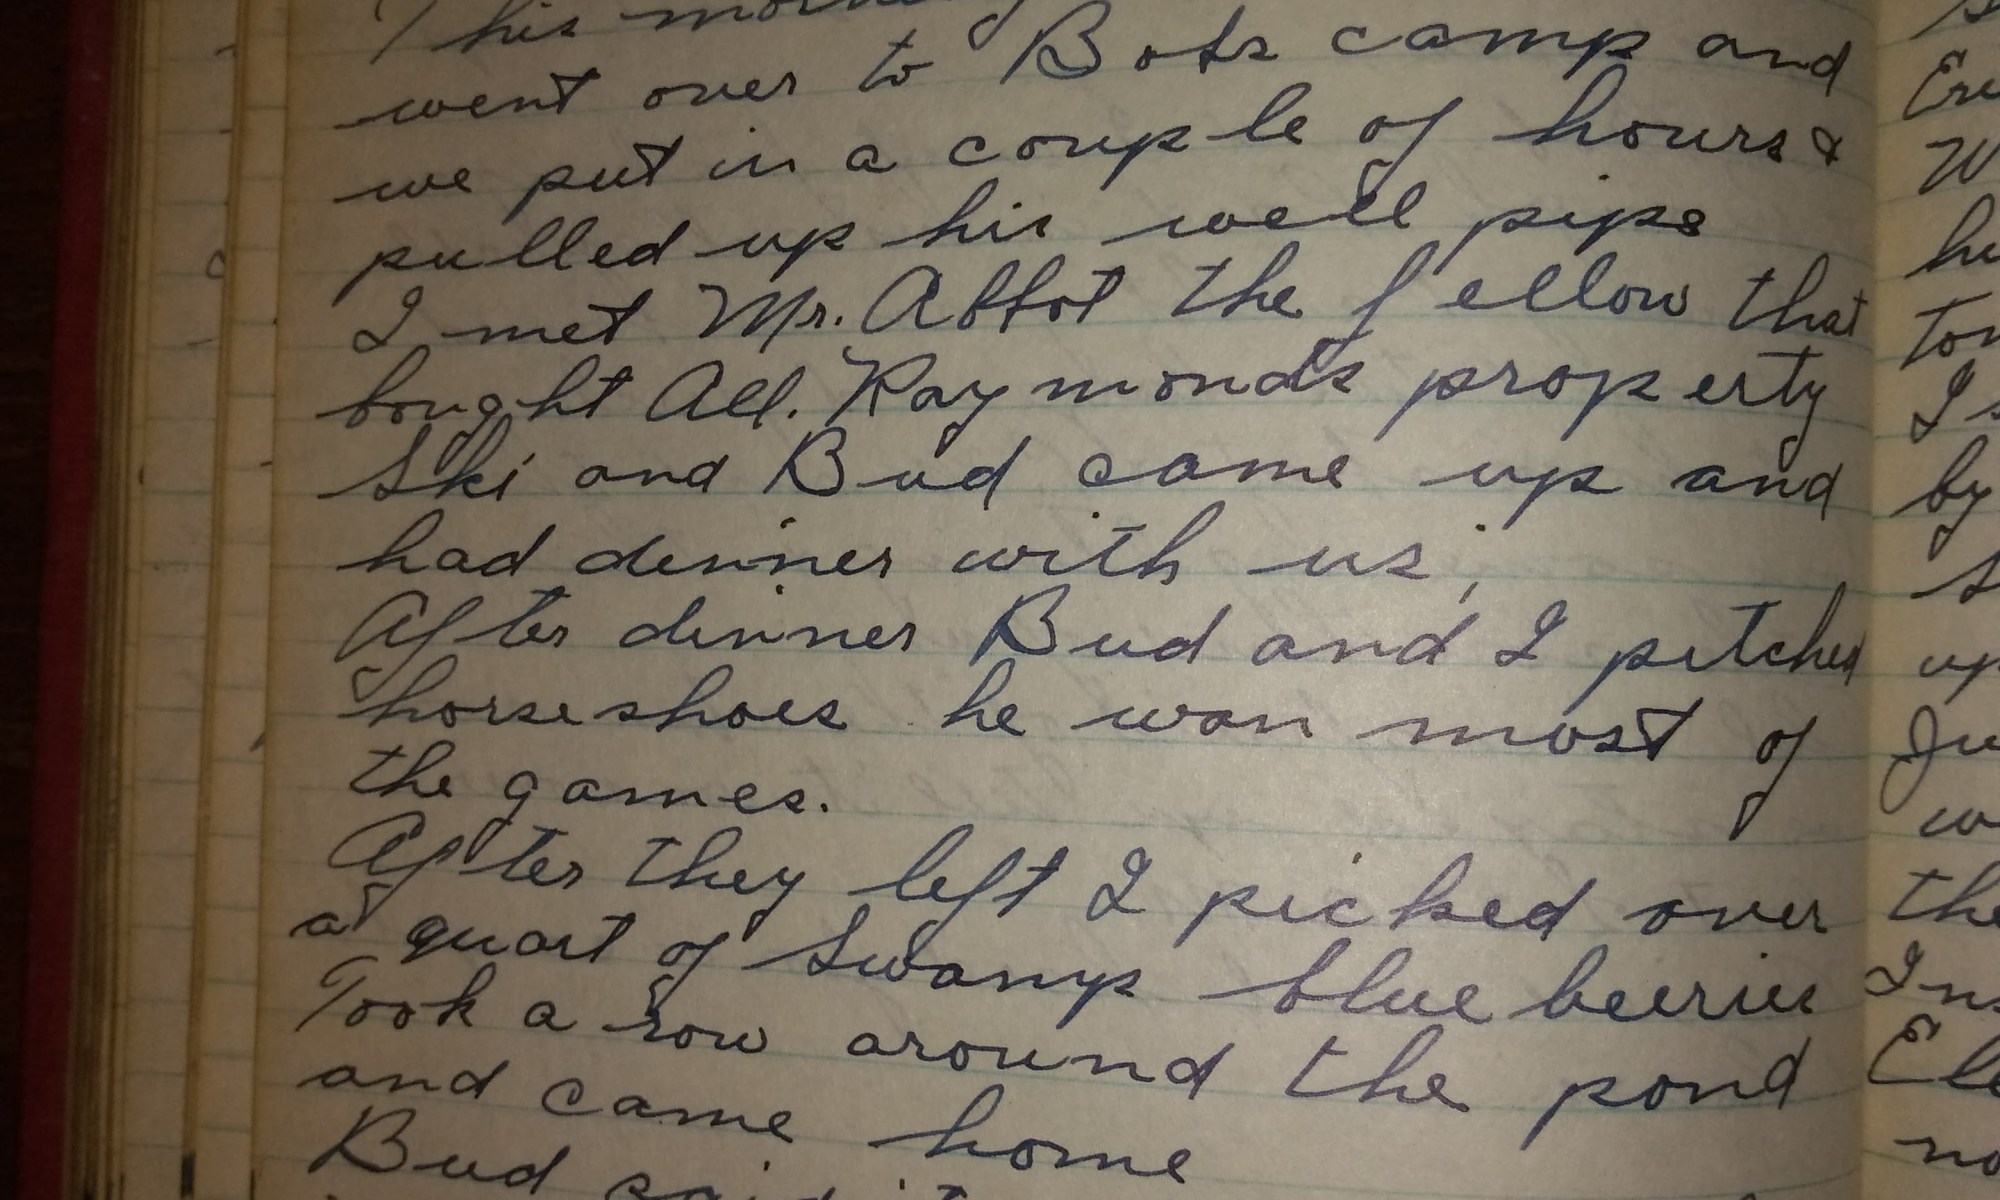 This morning
went over to Bobs camp and
we put in a couple of hours &
pulled up his well pipe
I met Mr. Abbot the fellow that
bought All. Raymonds property
Ski and Bud came up and
had dinner with us,
After dinner Bud and I pitched
horseshoes he won most of
the games.
After they left I picked over
a quart of Swamp blue beeries
Took a row around the pond
and came home
Bud said it